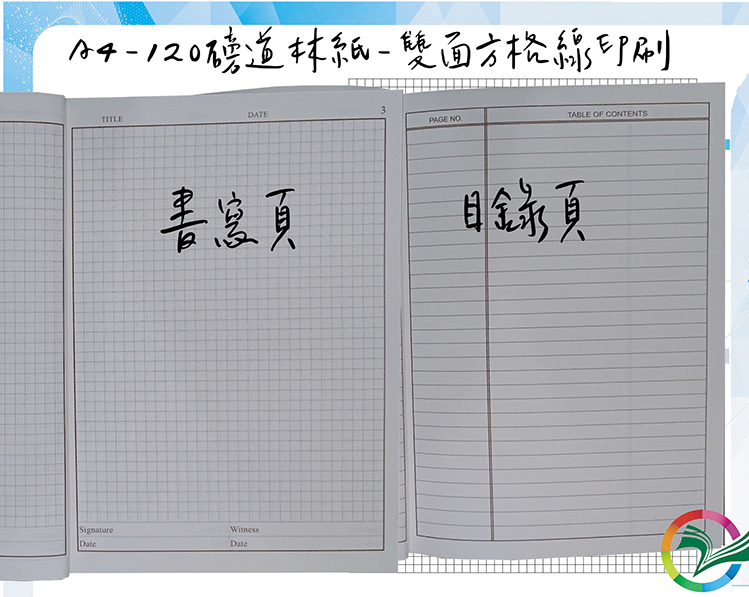 A4-120磅道林紙-雙面方格線印刷
TITLE DATE 3
書寫頁
Signature Witness
Date Date
PAGE NO. TABLE OF CONTENTS
目錄頁